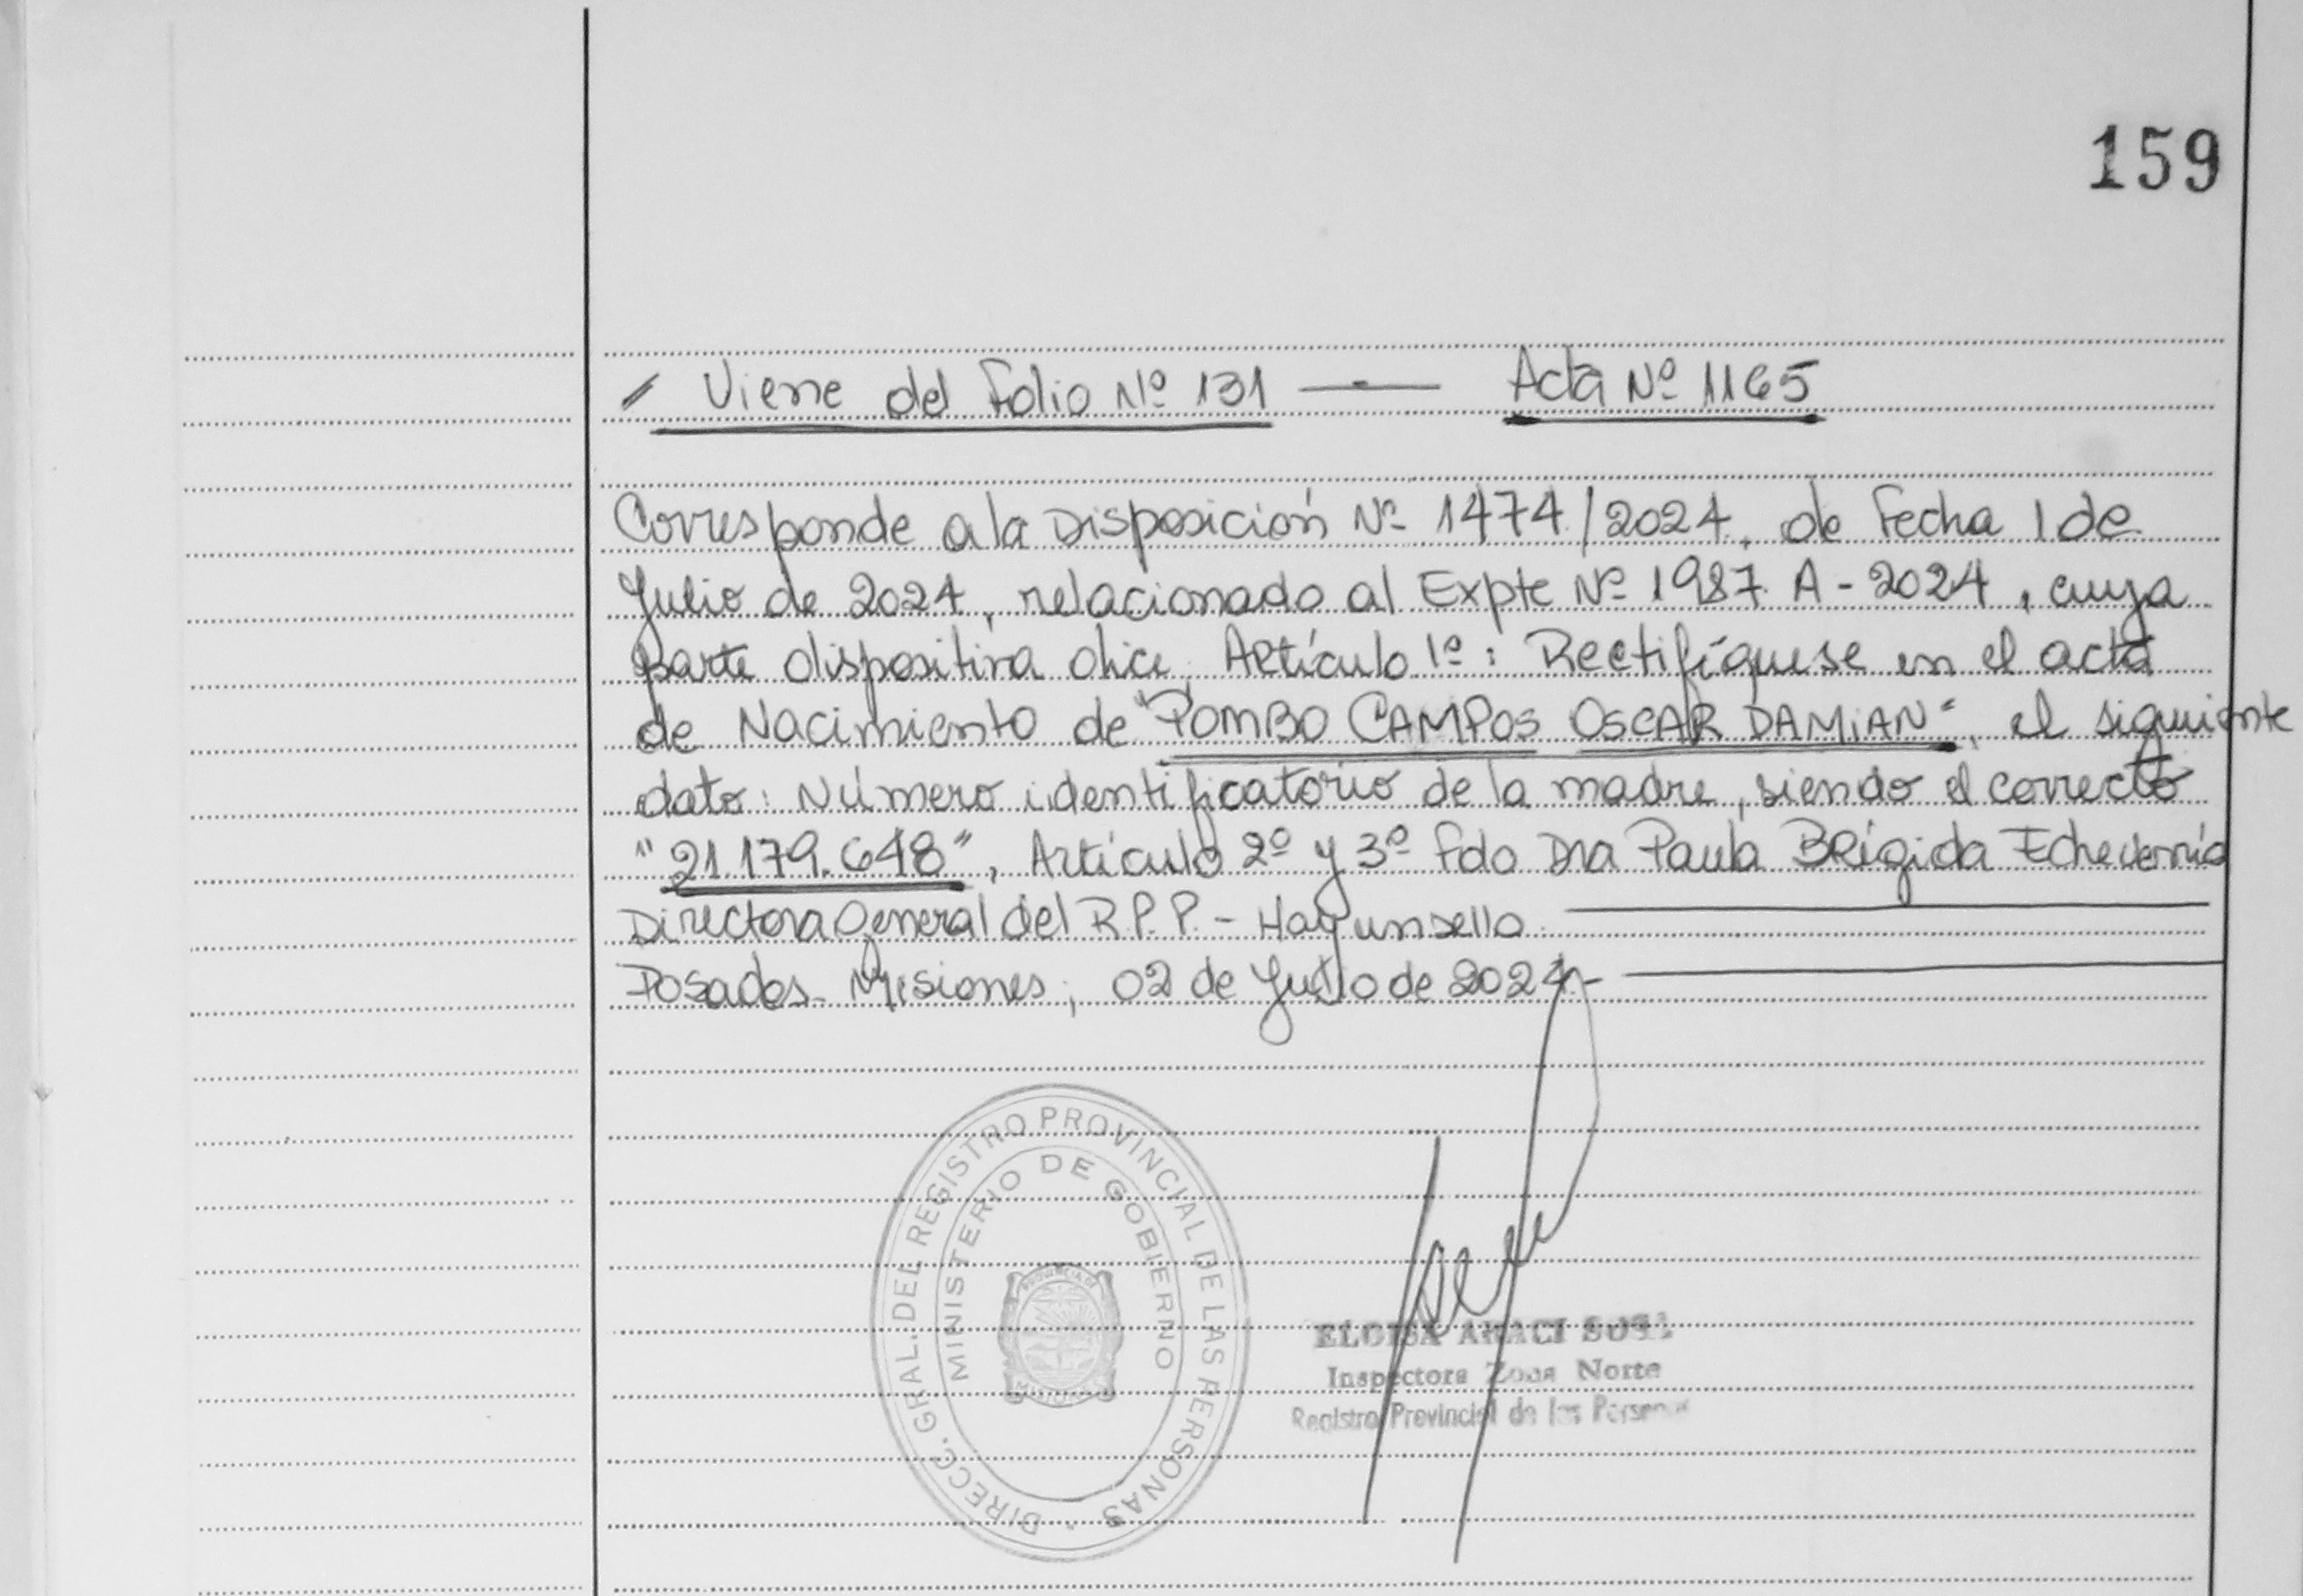 159
Viene del Folio Nº 131 — Acta Nº 1165
Corresponde a la Disposición Nº 1474/2024, de Fecha 1 de
Julio de 2024, relacionado al Expte Nº 1987 A - 2024, cuya
parte dispositiva dice. Artículo 1º: Rectifíquese en el acta
de Nacimiento de "POMBO CAMPOS OSCAR DAMIAN", el siguiente
dato: Número identificatorio de la madre, siendo el correcto
"21.179.648", Artículo 2º y 3º Fdo Dra Paula BRígida Echeverría
Directora General del R.P.P. - Hay un sello.
Posadas Misiones, 02 de Julio de 2024.-
DIRECC. GRAL. DEL REGISTRO PROVINCIAL DE LAS PERSONAS
MINISTERIO DE GOBIERNO
PROVINCIA DE
MISIONES
ELOISA ARACI
Inspectora Zona Norte
Registro Provincial de las Personas